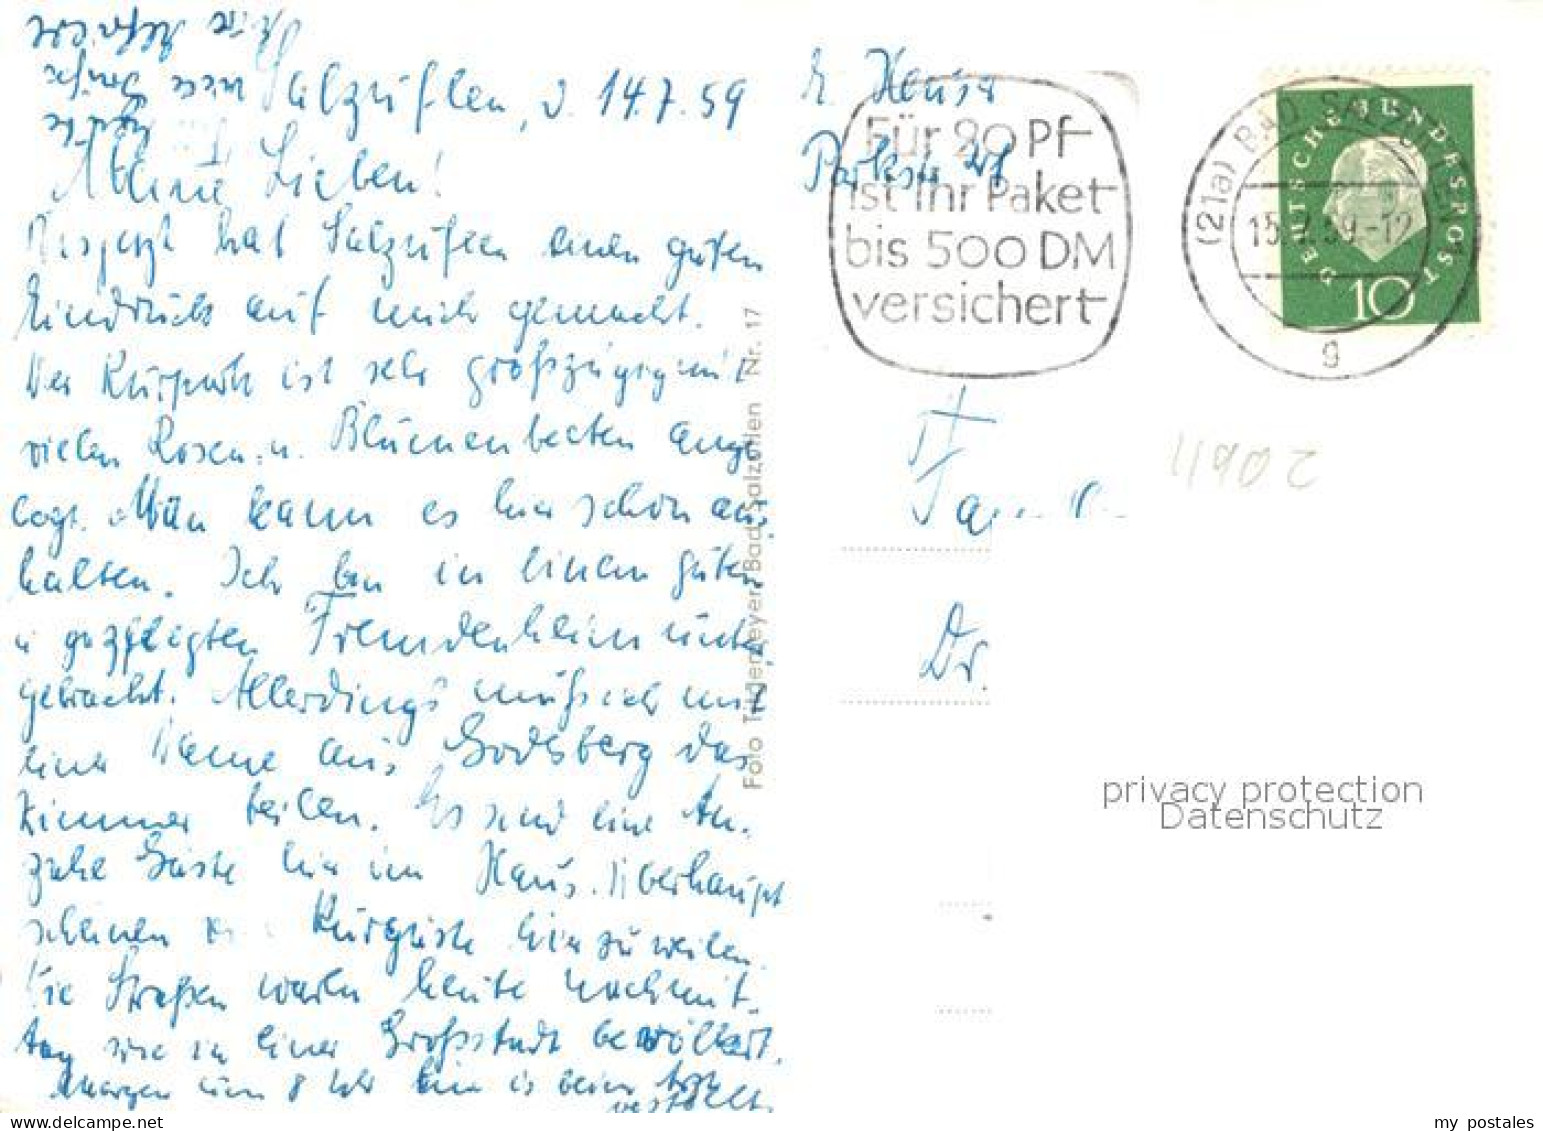 Salzuflen, d. 14.7.59
Meine Lieben!
Bis jetzt hat Salzuflen einen guten
Eindruck auf mich gemacht.
Der Kurpark ist sehr großzügig mit
vielen Rosen u. Blumenbeeten ange
legt. Man kann es hier schon aus
halten. Ich bin in einem guten
u. gepflegten Fremdenheim unter
gebracht. Allerdings muß ich mit
einer Dame aus Godesberg das
Zimmer teilen. Es sind eine An-
zahl Gäste hier im Haus. Überhaupt
scheinen Kurgäste hier zu weilen.
Die Straßen waren heute nachmit-
tag wie in einer Großstadt bevölkert.
Morgen um 8 Uhr bin ich beim Arzt
bestellt.
viele Grüße
Foto Tridenmeyer, Bad Salzuflen Nr. 17
Haus
Für 20 Pf
ist Ihr Paket
bis 500 DM
versichert
(21a) BAD SALZUFLEN
15.7.59-12
g
DEUTSCHE BUNDESPOST
10
Dr.
11902
privacy protection
Datenschutz
my postales